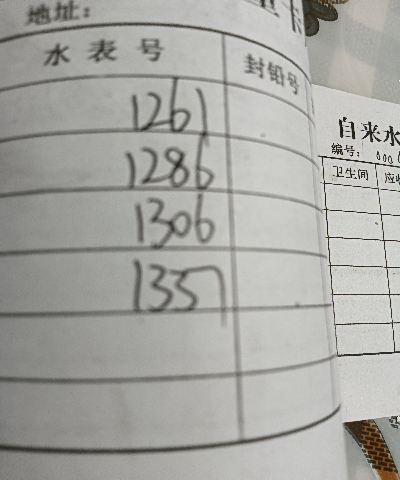 地址：
水表号 封铅号
1261
1286
1306
1337
自来水
编号： 000
卫生间 应收